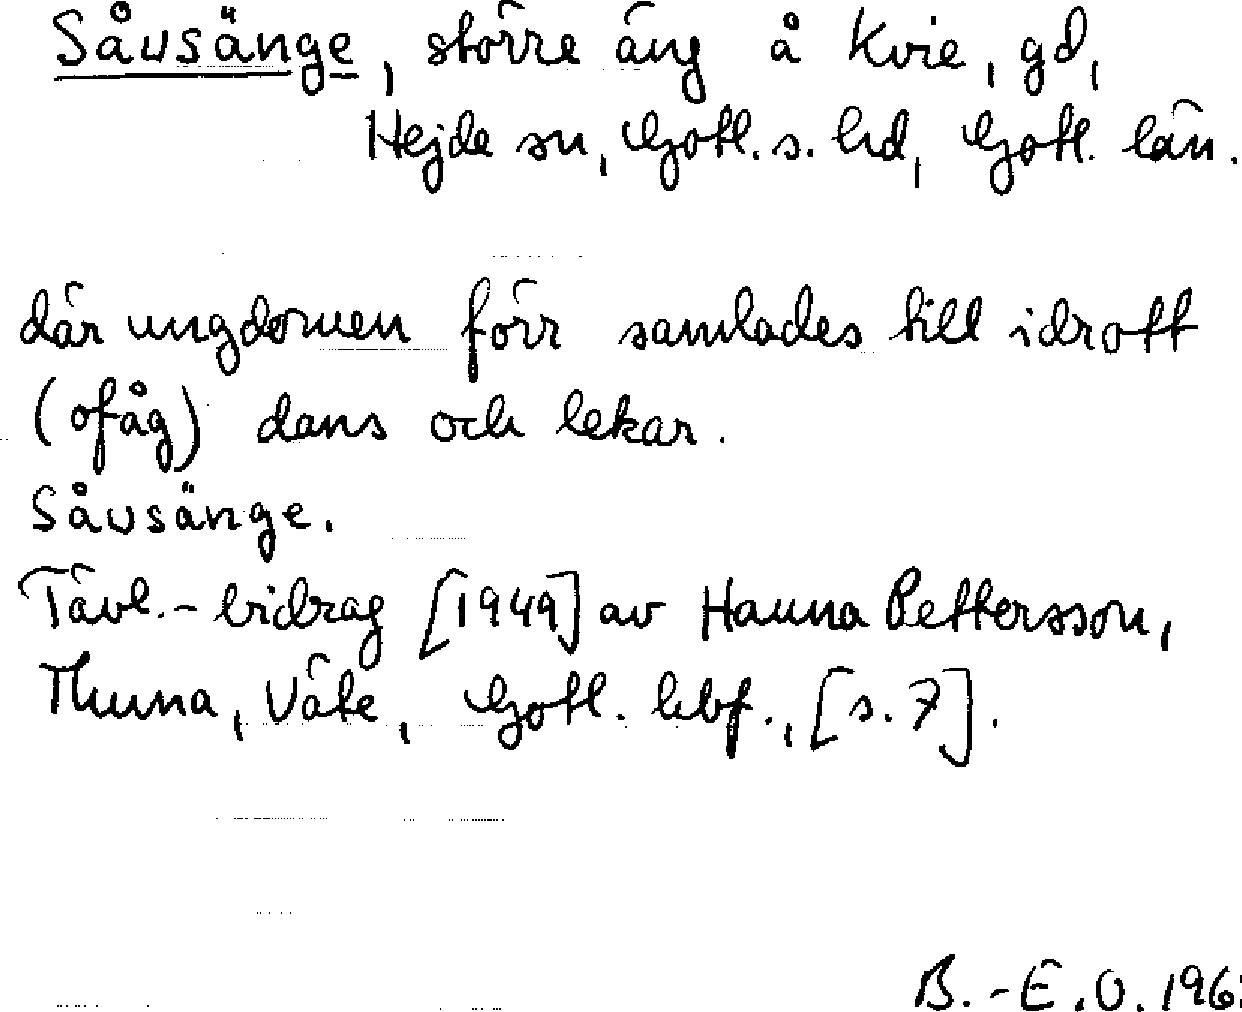 Såvsänge, större äng å Kvie, gd,
Hejde sn, Gotl. s. hd, Gotl. län.
där ungdomen förr samlades till idrott
(ofåg) dans och lekar.
Såvsänge.
Tävl.-bidrag [1949] av Hanna Pettersson,
Thuna, Väte, Gotl. kbf., [s. 7].
B.-E.O. 196